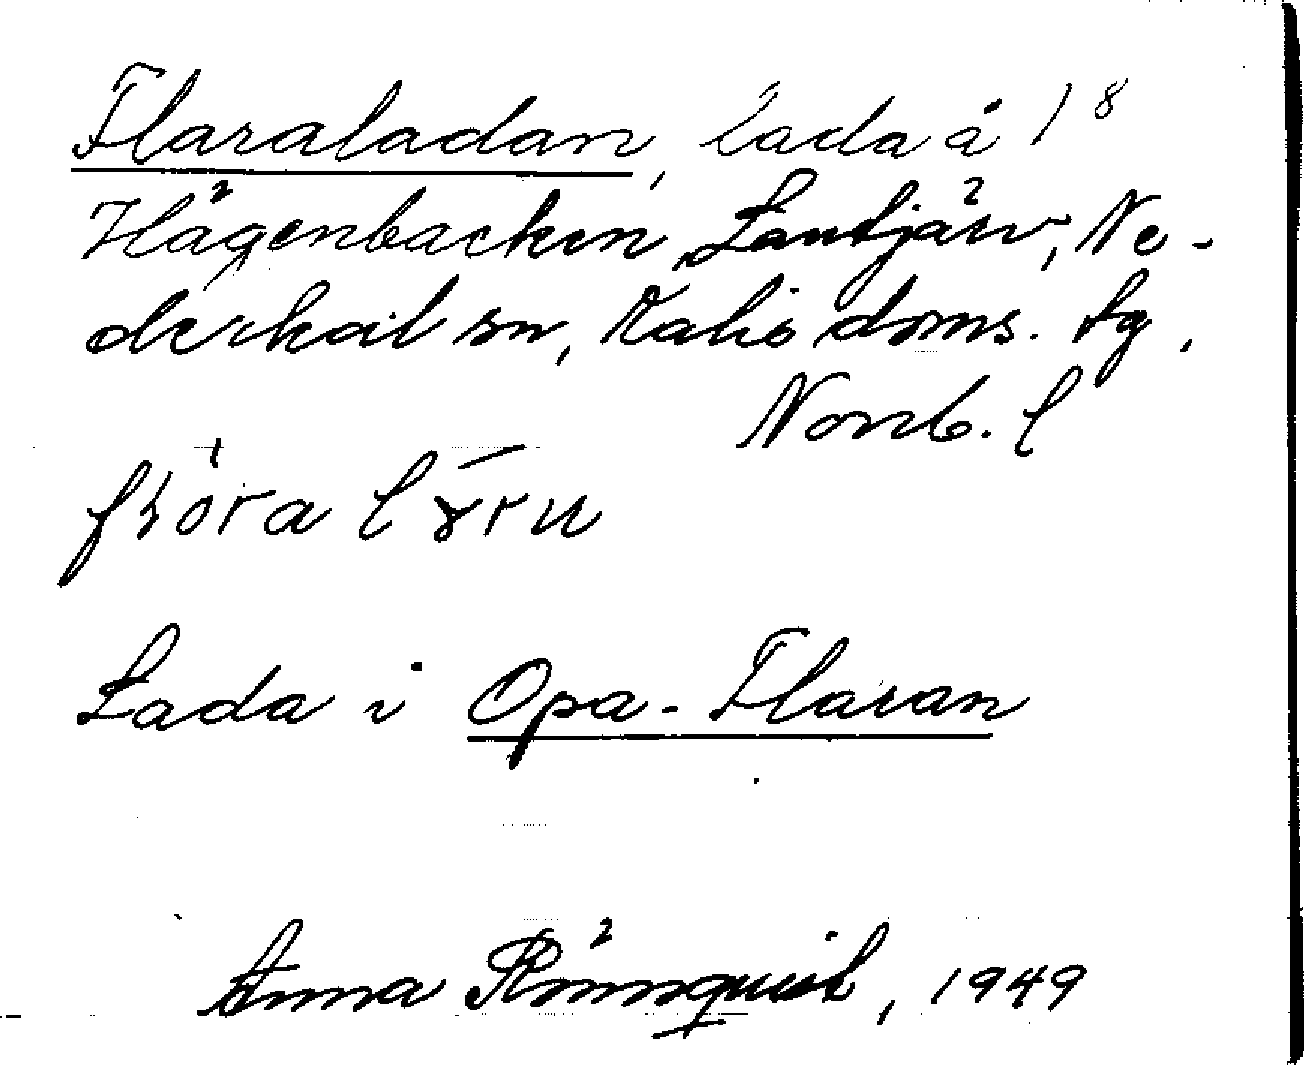 Flaraladan, lada å 1⁸
Hägenbacken, Lantjärv, Ne-
derkalix sn, Kalix doms. tg,
Norrb. l
Lada i Opa-Flaran
Anna Rönnquist, 1949